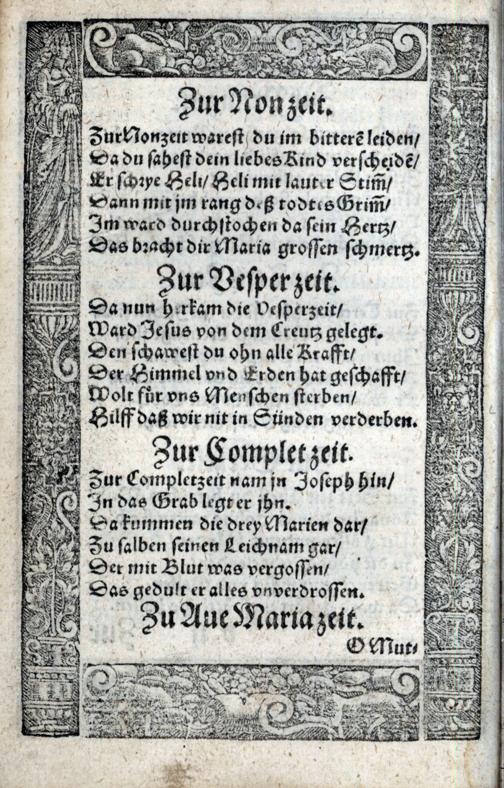 Zur Nonzeit.
Zur Nonzeit warest du im bitterẽ leiden/
Da du sahest dein liebes Kind verscheidẽ/
Er schrye Heli/ Heli mit lauter Stim̃/
Dann mit jm rang deß todtes Grim̃/
Im ward durchstochen da sein Hertz/
Das bracht dir Maria grossen schmertz.
Zur Vesperzeit.
Da nun herkam die Vesperzeit/
Ward Jesus von dem Creutz gelegt.
Den schawest du ohn alle Krafft/
Der Himmel vnd Erden hat geschafft/
Wolt für vns Menschen sterben/
Hilff daß wir nit in Sünden verderben.
Zur Completzeit.
Zur Completzeit nam jn Joseph hin/
In das Grab legt er jhn.
Da kummen die drey Marien dar/
Zu salben seinen Leichnam gar/
Der mit Blut was vergossen/
Das gedult er alles vnverdrossen.
Zu Aue Maria zeit.
O Mut⸗